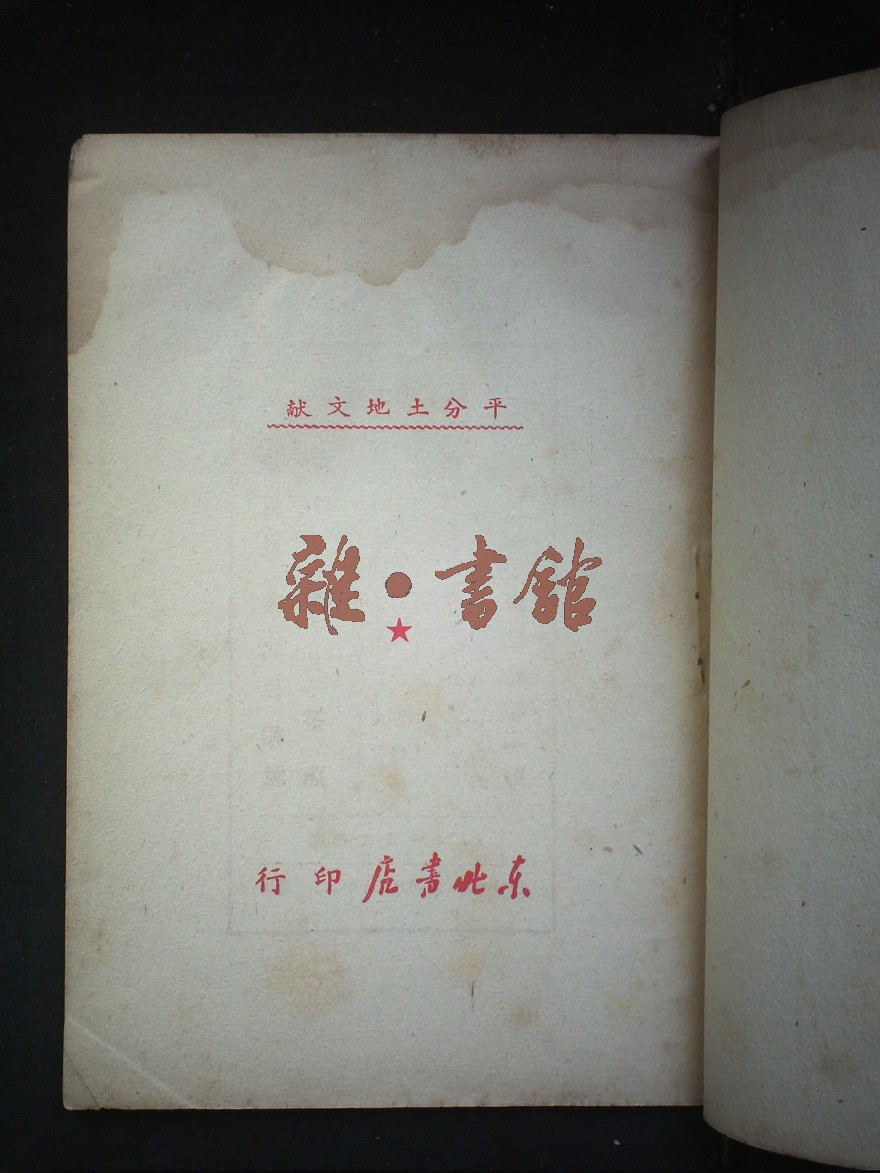 平分土地文献
雜·書館
东北書店印行